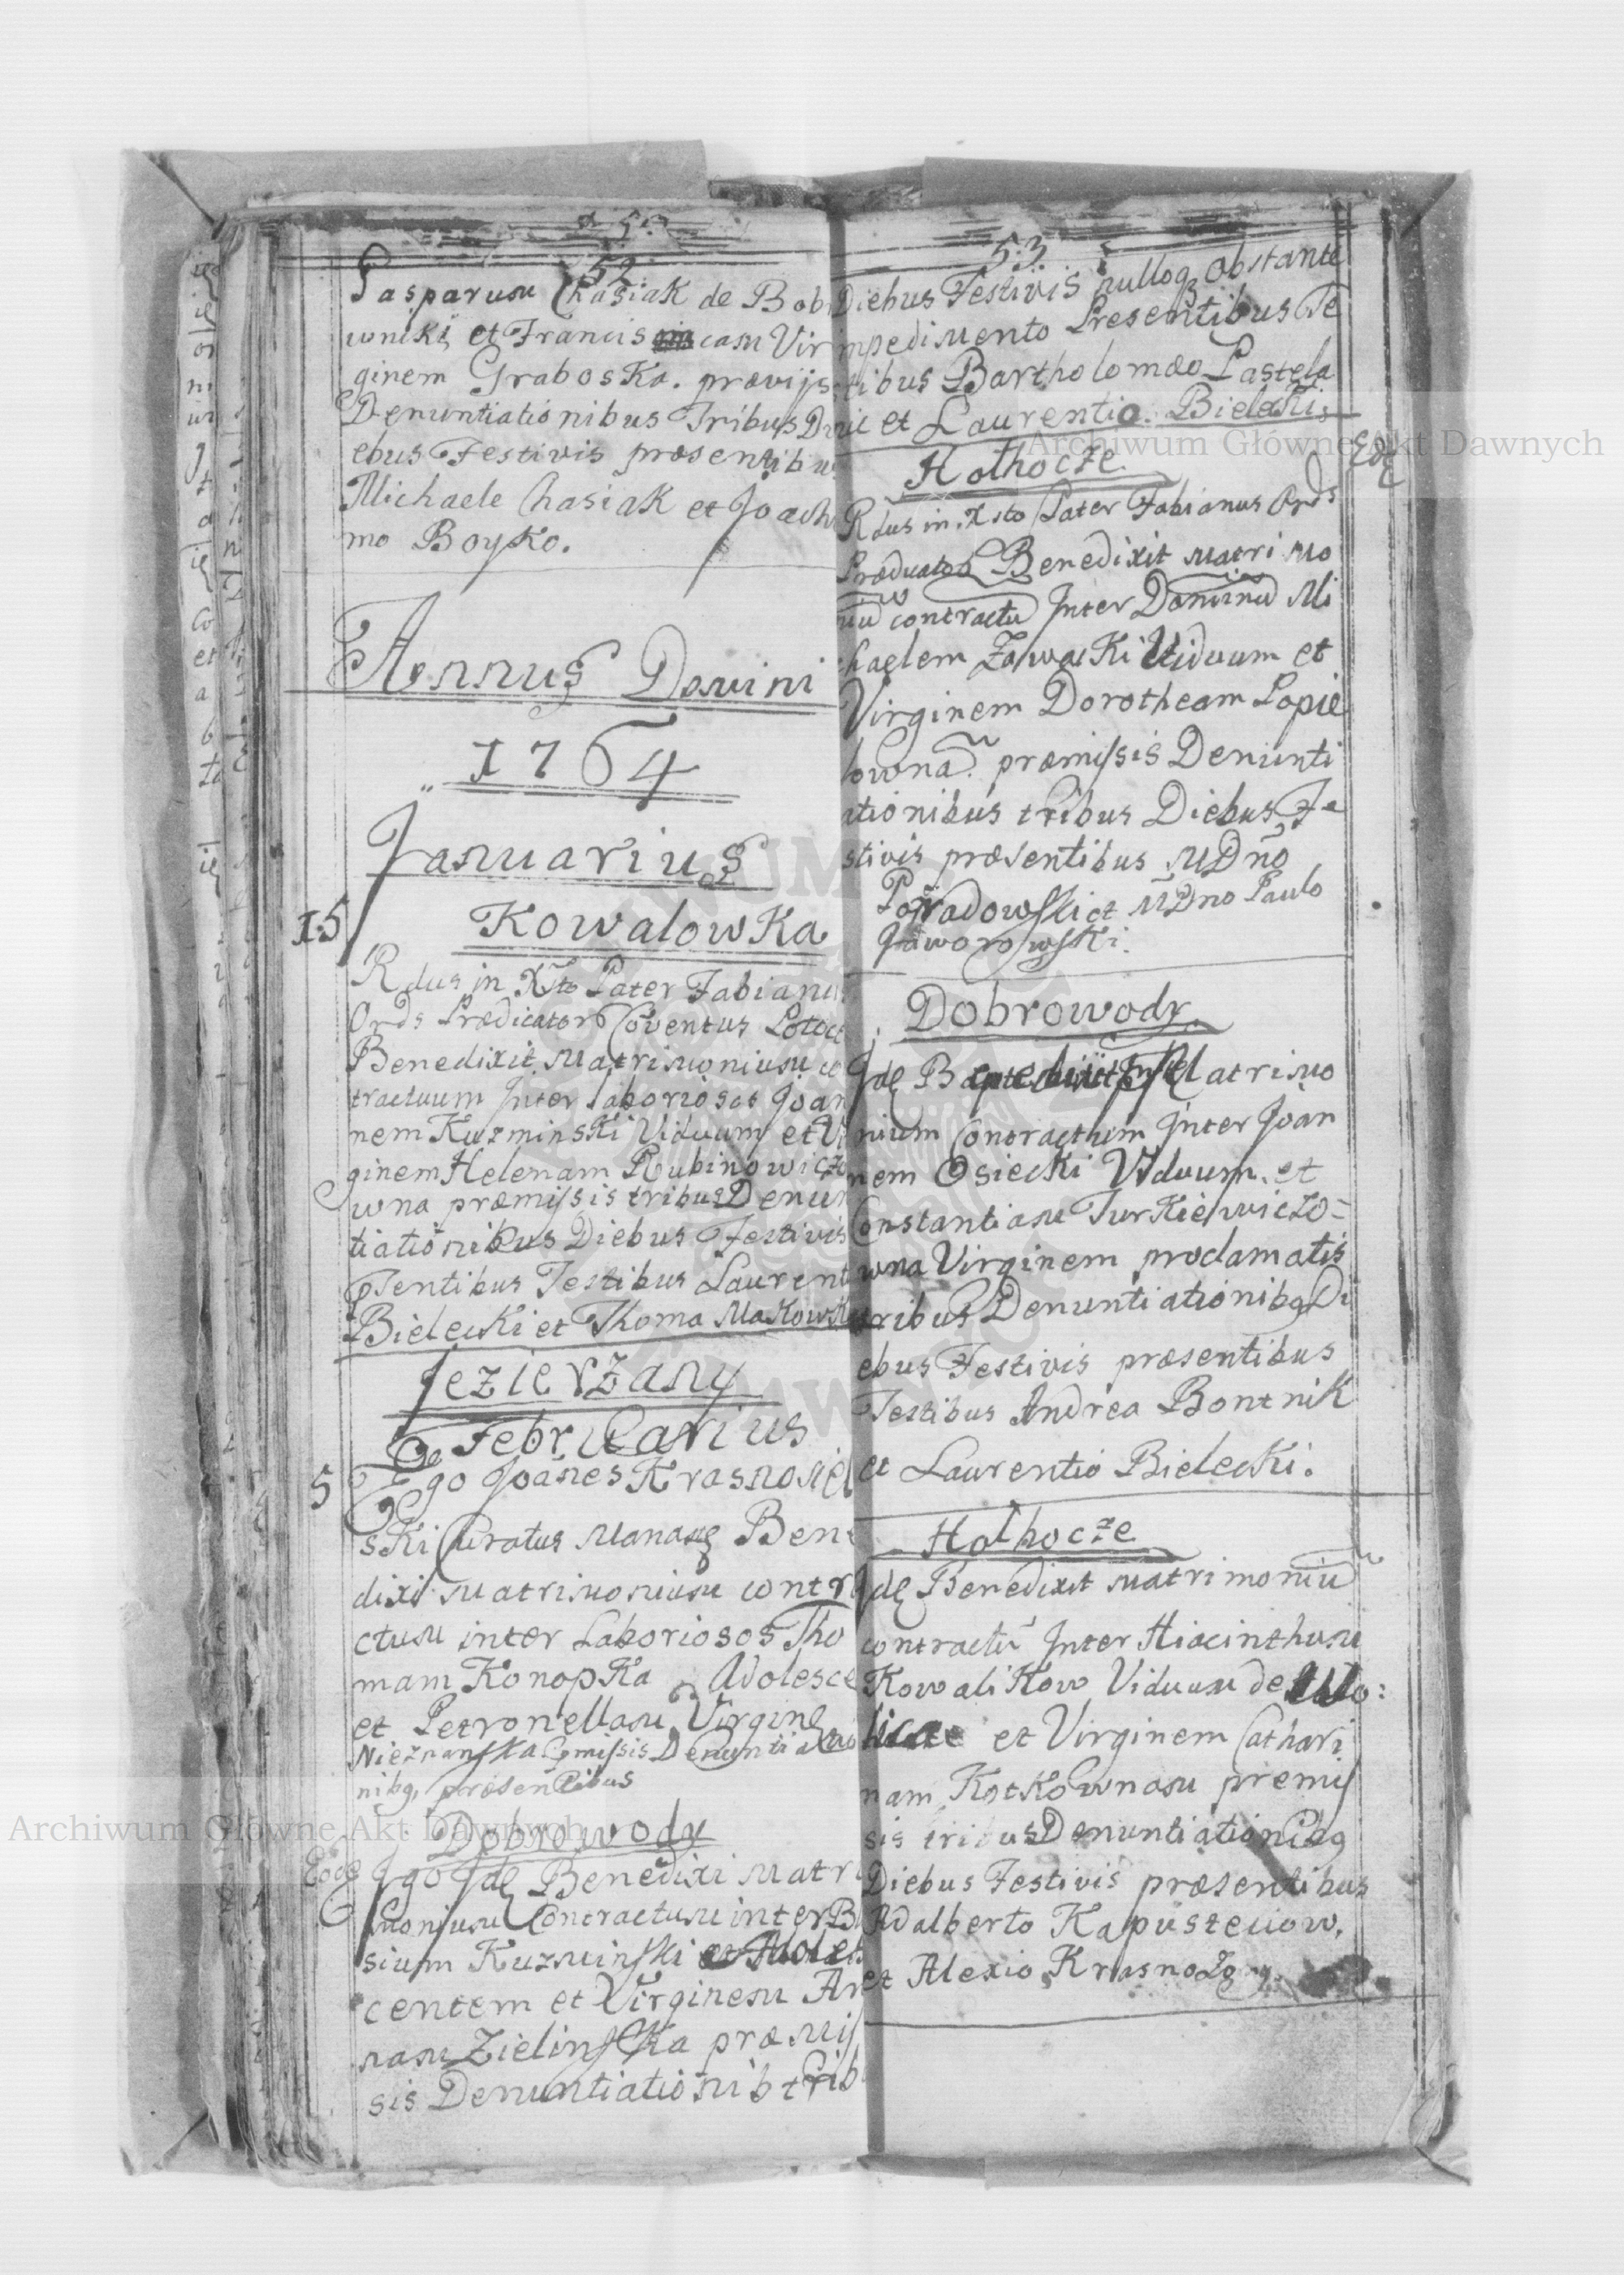 52
Gasparusu Chasiak de Bob
wniki et Francis casu Vir
ginem Graboska. prævijs
Denuntiationibus Tribus Di
ebus Festivis præsentibu
Michaele Chasiak et Joach
mo Boyko.
Annus Domini
1764
Januarius
15
Kowalowka
Rdus in Xsto Pater Fabianus
Ords Prædicator Coventus Potoc
Benedixit Matrimoniusu co
tractuum Inter laboriosos Joan
nem Kuzminski Viduum et Vi
ginem Helenam Rubinowiczo
wna præmissis tribus Denun
tiationibus Diebus Festivis
Psentibus Testibus Laurent
Bielecki et Thoma Makowsk
Jezierzany
Februarius
5
Ego Joanes Krasnosiel
ski Curatus Monast Bene
dixi Matrimoniusu contra
ctusu inter Laboriosos Tho
mam Konopka Adolesce
et Petronellasu Virgine
Nieznanska Pmissis Denuntiatio
nibq præsentibus
Dobrowody
Eode Ego Ide Benedixi Matri
moniusu Contractusu inter B
sium Kuzminski
centem et Virginesu An
nasu Zielinska præmis
sis Denuntiationib trib
53
Diebus Festivis nulloq Obstante
mpedimento Presentibus Te
tibus Bartholomæo Pastela
et Laurentio Bielecki
Eode
Hołhocze
Rdus in Xsto Pater Fabianus Ords
Benedixit Matrimo
niu contractu Inter Dominu Mi
chaelem Zawacki Viduum et
Virginem Dorotheam Popie
lowna præmissis Denunti
ationibus tribus Diebus Fe
stivis præsentibus MDno
Pogradowski et MDno Paulo
Jaworowski.
Dobrowody.
Ide Matrimo
nium Contractum Inter Joan
nem Osiecki Viduum et
Constantiasu Turkiewiczo=
wna Virginem proclamatis
tribus Denuntiationibq Di
ebus Festivis præsentibus
Testibus Andrea Bontnik
et Laurentio Bielecki.
Hołhocze
Ide Benedixit Matrimoniu
contractu Inter Hiacinthusu
Kowalikow Viduusu de
et Virginem Cathari
nam Kotkownasu premis
sis tribus Denuntiationibq
Diebus Festivis præsentibus
Adalberto Kapustenow.
et Alexio Krasnozony.
Archiwum Główne Akt Dawnych
Archiwum Główne Akt Dawnych